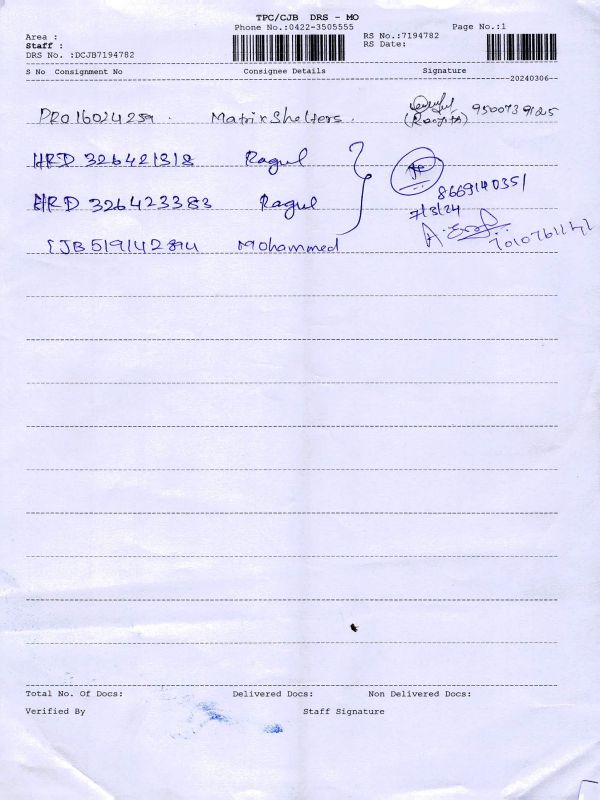 TPC/CJB DRS - MO
Phone No.:0422-3505555
Page No.:1
Area :
RS No.:7194782
Staff :
RS Date:
DRS No. :DCJB7194782
S No Consignment No Consignee Details Signature
20240306
PRO16024259. Matrix Shelters. (Ranjith)
HRD 326421318 Ragul
HRD 326423383 Ragul 8669140351
7/3/24
CJB519142894 Mohammed
Total No. Of Docs: Delivered Docs: Non Delivered Docs:
Verified By Staff Signature